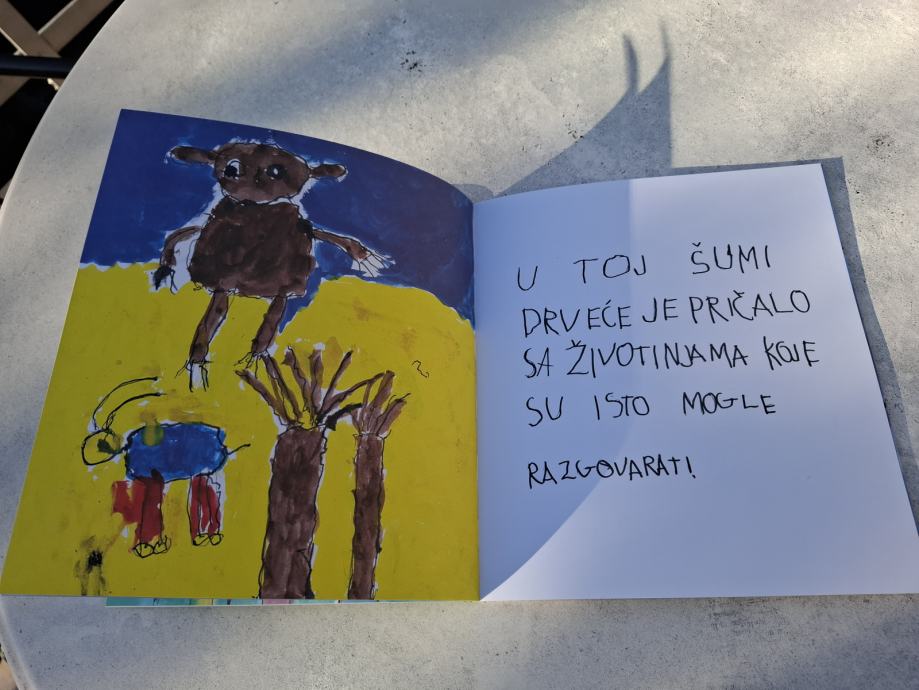 U TOJ ŠUMI
DRVEĆE JE PRIČALO
SA ŽIVOTINJAMA KOJE
SU ISTO MOGLE
RAZGOVARATI!